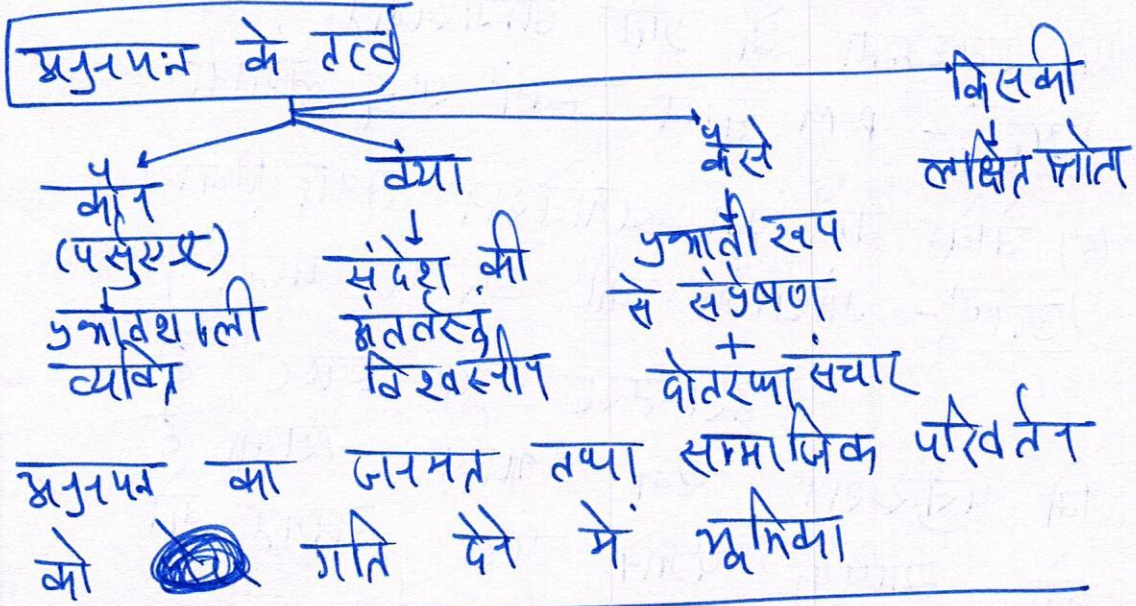 अनुनयन के तत्व
कौन
(पर्सुएडर)
प्रभावशाली
व्यक्ति
क्या
संदेश की
अंतर्वस्तु
विश्वसनीय
कैसे
प्रभावी रूप
से संप्रेषण
+
दोतरफा संचार
किसकी
लक्षित श्रोता
अनुनयन का जनमत तथा सामाजिक परिवर्तन
को गति देने में भूमिका